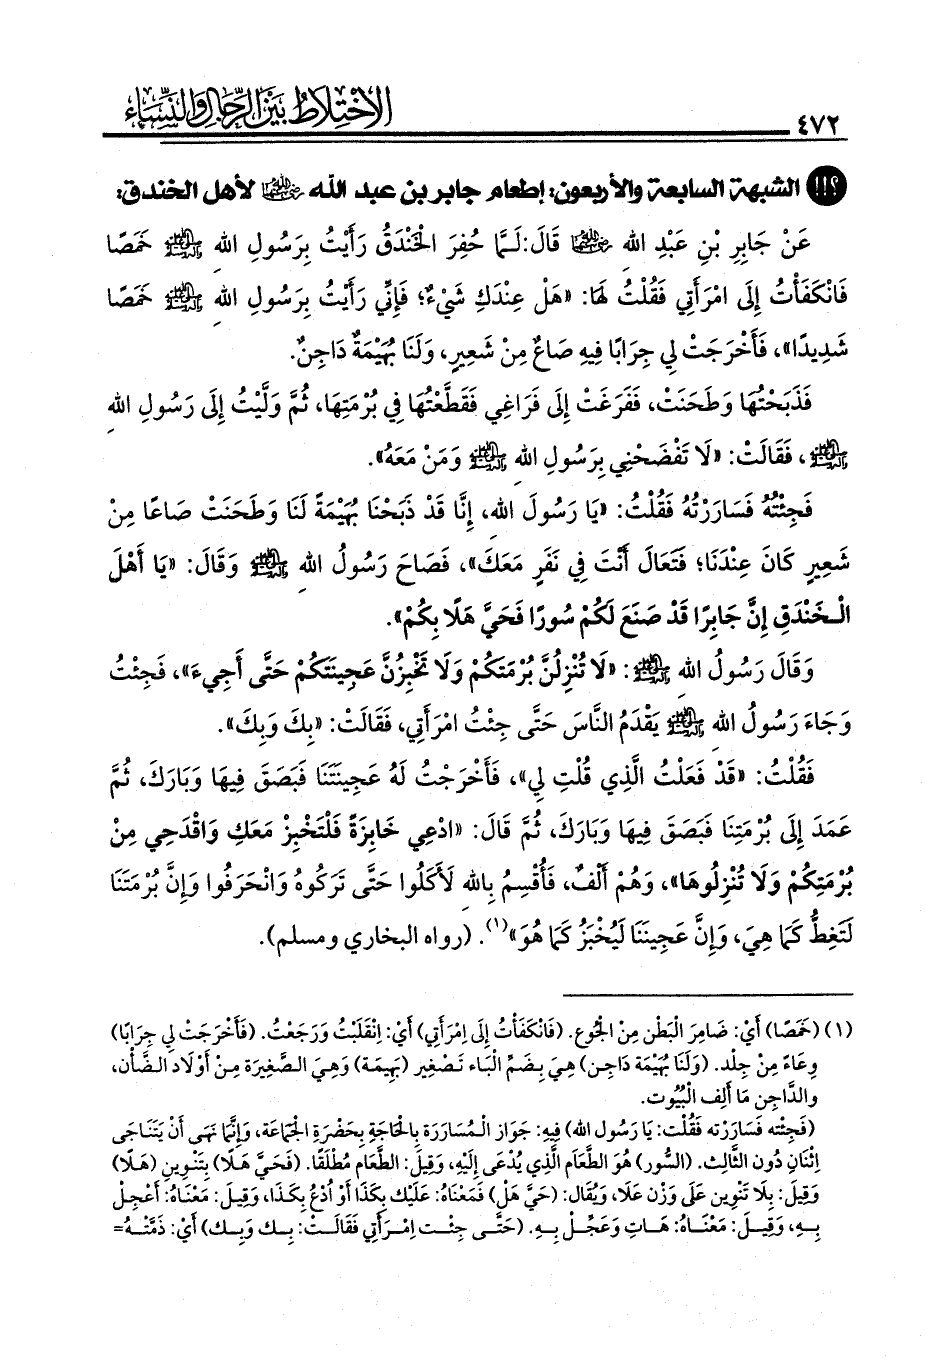 الاختلاط بين الرجال والنساء
٤٧٢
الشبهة السابعة والأربعون: إطعام جابر بن عبد الله رضي الله عنهما لأهل الخندق:
عَنْ جَابِرِ بْنِ عَبْدِ اللهِ رضي الله عنهما قَالَ: لَـمَّا حُفِرَ الْخَنْدَقُ رَأَيْتُ بِرَسُولِ اللهِ ﷺ خَمَصًا
فَانْكَفَأْتُ إِلَى امْرَأَتِي فَقُلْتُ لَهَا: «هَلْ عِنْدَكِ شَيْءٌ؛ فَإِنِّي رَأَيْتُ بِرَسُولِ اللهِ ﷺ خَمَصًا
شَدِيدًا»، فَأَخْرَجَتْ لِي جِرَابًا فِيهِ صَاعٌ مِنْ شَعِيرٍ، وَلَنَا بُهَيْمَةٌ دَاجِنٌ.
فَذَبَحْتُهَا وَطَحَنَتْ، فَفَرَغَتْ إِلَى فَرَاغِي فَقَطَّعْتُهَا فِي بُرْمَتِهَا، ثُمَّ وَلَّيْتُ إِلَى رَسُولِ اللهِ
ﷺ، فَقَالَتْ: «لَا تَفْضَحْنِي بِرَسُولِ اللهِ ﷺ وَمَنْ مَعَهُ».
فَجِئْتُهُ فَسَارَرْتُهُ فَقُلْتُ: «يَا رَسُولَ اللهِ، إِنَّا قَدْ ذَبَحْنَا بُهَيْمَةً لَنَا وَطَحَنَتْ صَاعًا مِنْ
شَعِيرٍ كَانَ عِنْدَنَا؛ فَتَعَالَ أَنْتَ فِي نَفَرٍ مَعَكَ»، فَصَاحَ رَسُولُ اللهِ ﷺ وَقَالَ: «يَا أَهْلَ
الْـخَنْدَقِ إِنَّ جَابِرًا قَدْ صَنَعَ لَكُمْ سُورًا فَحَيَّ هَلًا بِكُمْ».
وَقَالَ رَسُولُ اللهِ ﷺ: «لَا تُنْزِلُنَّ بُرْمَتَكُمْ وَلَا تَخْبِزُنَّ عَجِينَتَكُمْ حَتَّى أَجِيءَ»، فَجِئْتُ
وَجَاءَ رَسُولُ اللهِ ﷺ يَقْدَمُ النَّاسَ حَتَّى جِئْتُ امْرَأَتِي، فَقَالَتْ: «بِكَ وَبِكَ».
فَقُلْتُ: «قَدْ فَعَلْتُ الَّذِي قُلْتِ لِي»، فَأَخْرَجْتُ لَهُ عَجِينَتَنَا فَبَصَقَ فِيهَا وَبَارَكَ، ثُمَّ
عَمَدَ إِلَى بُرْمَتِنَا فَبَصَقَ فِيهَا وَبَارَكَ، ثُمَّ قَالَ: «ادْعِي خَابِزَةً فَلْتَخْبِزْ مَعَكِ وَاقْدَحِي مِنْ
بُرْمَتِكُمْ وَلَا تُنْزِلُوهَا»، وَهُمْ أَلْفٌ، فَأُقْسِمُ بِاللهِ لَأَكَلُوا حَتَّى تَرَكُوهُ وَانْحَرَفُوا وَإِنَّ بُرْمَتَنَا
لَتَغِطُّ كَمَا هِيَ، وَإِنَّ عَجِينَنَا لَيُخْبَزُ كَمَا هُوَ»(١). (رواه البخاري ومسلم).
(١) (خَمَصًا) أَيْ: ضَامِرَ الْبَطْنِ مِنْ الْجُوعِ. (فَانْكَفَأْتُ إِلَى امْرَأَتِي) أَيْ: اِنْقَلَبْتُ وَرَجَعْتُ. (فَأَخْرَجَتْ لِي جِرَابًا)
وِعَاءً مِنْ جِلْد. (وَلَنَا بُهَيْمَة دَاجِن) هِيَ بِضَمِّ الْبَاء تَصْغِير (بَهِيمَة) وَهِيَ الصَّغِيرَة مِنْ أَوْلَاد الضَّأْن،
والدَّاجِن مَا أَلِف الْبُيُوت.
(فَجِئْته فَسَارَرْته فَقُلْت: يَا رَسُول الله) فِيهِ: جَوَاز الْـمُسَارَرَة بِالْحَاجَةِ بِحَضْرَةِ الْجَمَاعَة، وَإِنَّمَا نَهَى أَنْ يَتَنَاجَى
اِثْنَانِ دُون الثَّالِث. (السُّور) هُوَ الطَّعَام الَّذِي يُدْعَى إِلَيْهِ، وَقِيلَ: الطَّعَام مُطْلَقًا. (فَحَيَّ هَلًا) بِتَنْوِينِ (هَلًا)
وَقِيلَ: بِلَا تَنْوِين عَلَى وَزْن عَلَا، وَيُقَال: (حَيَّ هَلْ) فَمَعْنَاهُ: عَلَيْك بِكَذَا أَوْ اُدْعُ بِكَذَا، وَقِيلَ: مَعْنَاهُ: أَعْجِلْ
بِهِ، وَقِيلَ: مَعْنَاهُ: هَاتِ وَعَجِّلْ بِهِ. (حَتَّى جِئْت اِمْرَأَتِي فَقَالَتْ: بِك وَبِك) أَيْ: ذَمَّتْهُ=